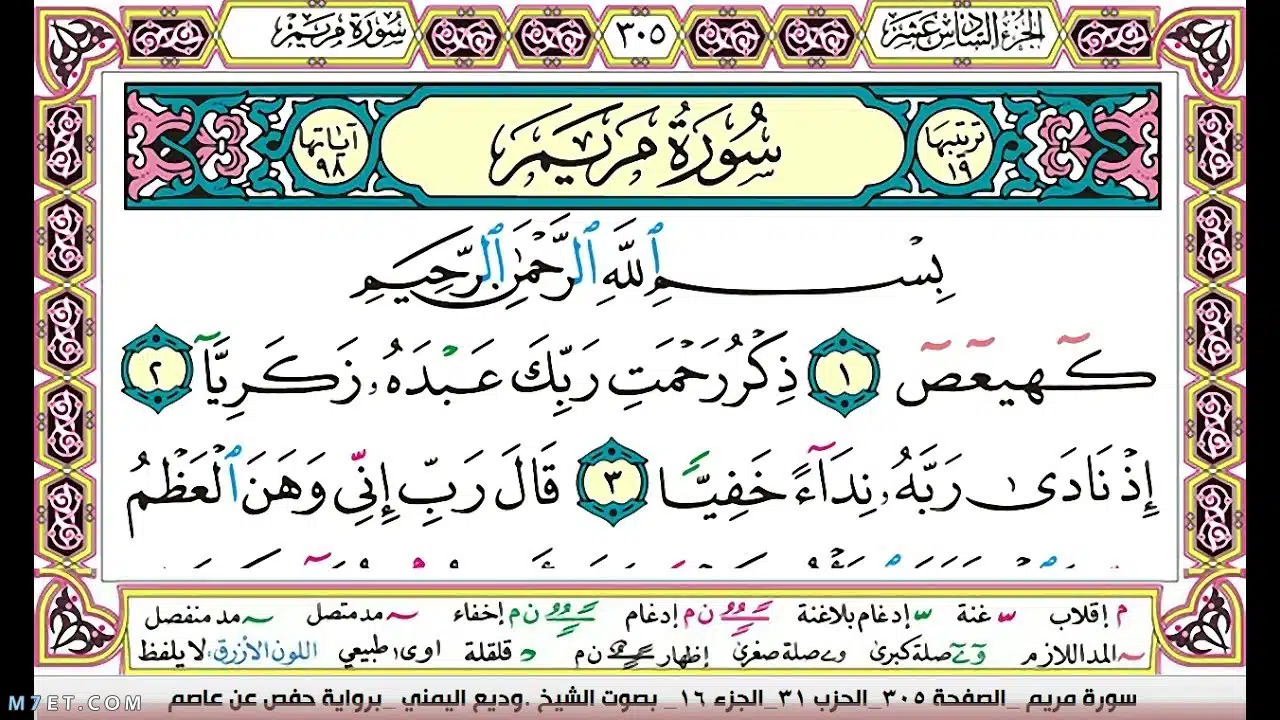 الجزء السادس عشر ٣٠٥ سورة مريم
ترتيبها ١٩ سُورَةُ مَرْيَمَ آياتها ٩٨
بِسْمِ ٱللَّهِ ٱلرَّحْمَٰنِ ٱلرَّحِيمِ
كٓهيعٓصٓ ١ ذِكْرُ رَحْمَتِ رَبِّكَ عَبْدَهُۥ زَكَرِيَّآ ٢
إِذْ نَادَىٰ رَبَّهُۥ نِدَآءً خَفِيًّا ٣ قَالَ رَبِّ إِنِّى وَهَنَ ٱلْعَظْمُ
م إقلاب غنة إدغام بلاغنة ن م إدغام ن م إخفاء مد متصل مد منفصل
المد اللازم صلة كبرى صلة صغرى إظهار ن م قلقلة طبيعي اللون الأزرق: لا يلفظ
سورة مريم _الصفحة ٣٠٥_الحزب ٣١_الجزء ١٦_ بصوت الشيخ .وديع اليمني _برواية حفص عن عاصم
M7ET.COM